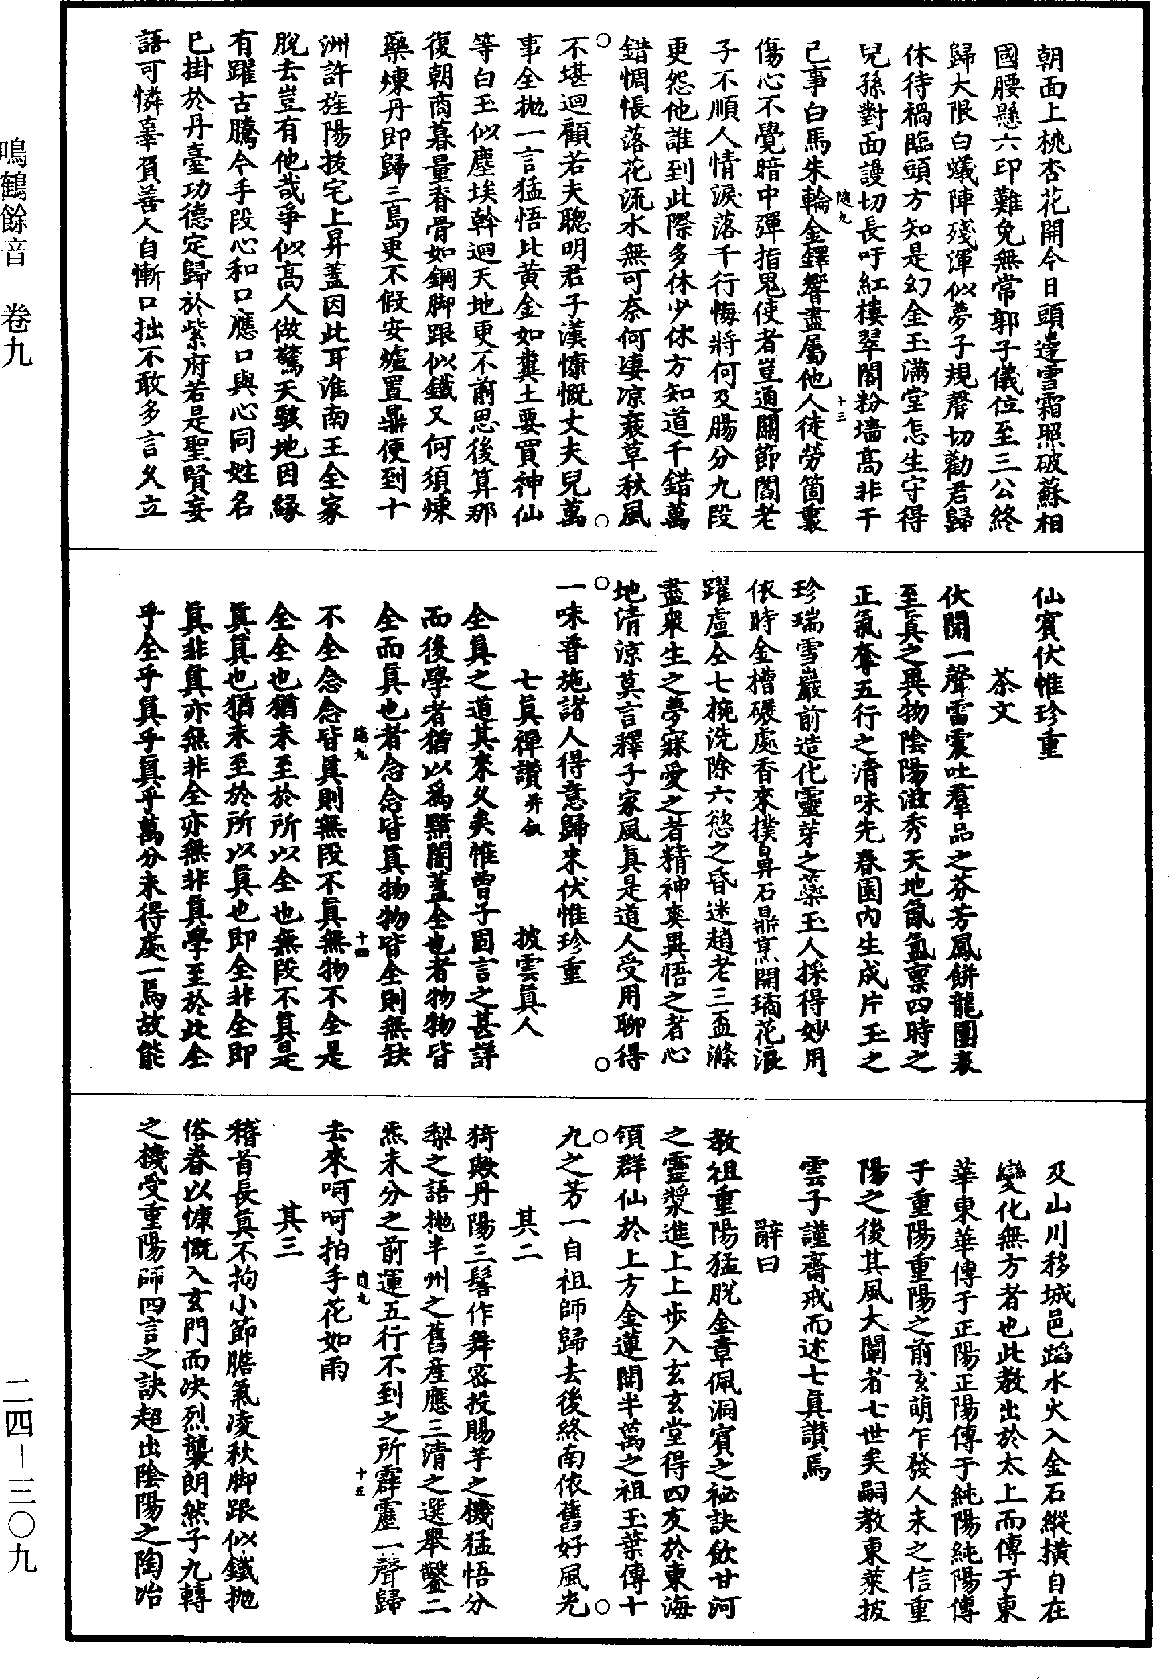 朝面上桃杏花開今日頭邊雪霜照破蘇相
國腰懸六印難免無常郭子儀位至三公終
歸大限白蟻陣殘渾似夢子規聲切勸君歸
休待禍臨頭方知是幻金玉滿堂怎生守得
兒孫對面謾切長吁紅樓翠閣粉墻高非干
己事白馬朱輪金鐸響盡屬他人徒勞箇裏
隨九
十三
傷心不覺暗中彈指鬼使者豈通關節閻老
子不順人情淚落千行悔將何及腸分九段
更怨他誰到此際多休少休方知道千錯萬
錯惆悵落花流水無可奈何悽凉衰草秋風
不堪迴顧若夫聰明君子漢慷慨丈夫兒萬
事全抛一言猛悟比黃金如糞土要買神仙
等白玉似塵埃斡迴天地更不前思後算那
復朝商暮量脊骨如鋼脚跟似鐵又何須煉
藥煉丹即歸三島更不假安爐置鼎便到十
洲許旌陽拔宅上昇蓋因此耳淮南王全家
脫去豈有他哉爭似高人做驚天駭地因緣
有躍古騰今手段心和口應口與心同姓名
已掛於丹臺功德定歸於紫府若是聖賢妄
語可憐辜負善人自慚口拙不敢多言久立
仙賓伏惟珍重
茶文
伏聞一聲雷震吐羣品之芬芳鳳餅龍團表
至真之異物陰陽滋秀天地氤氳禀四時之
正氣奪五行之清味先春園內生成片玉之
珍瑞雪巖前造化靈芽之蘂玉人採得妙用
依時金槽碾處香來撲鼻石鼎烹開璚花浪
躍盧仝七椀洗除六慾之昏迷趙老三盃滌
盡衆生之夢寐愛之者精神爽異悟之者心
地清涼莫言釋子家風真是道人受用聊得
一味普施諸人得意歸來伏惟珍重
七真禪讚并叙 披雲真人
全真之道其來久矣惟曹子固言之甚詳
而後學者猶以爲黯闇蓋全也者物物皆
全而真也者念念皆真物物皆全則無缺
隨九
十四
不全念念皆真則無段不真無物不全是
全全也猶未至於所以全也無段不真是
真真也猶未至於所以真也即全非全即
真非真亦無非全亦無非真學至於此全
乎全乎真乎真乎萬分未得處一焉故能
及山川移城邑蹈水火入金石縱橫自在
變化無方者也此教出於太上而傳于東
華東華傳于正陽正陽傳于純陽純陽傳
于重陽重陽之前玄萌乍發人未之信重
陽之後其風大闡者七世矣嗣教東萊披
雲子謹齋戒而述七真讃焉
辭曰
教祖重陽猛脫金章佩洞賓之祕訣飲甘河
之靈漿進上上步入玄玄堂得四友於東海
領群仙於上方金蓮開半萬之祖玉葉傳十
九之芳一自祖師歸去後終南依舊好風光
其二
猗歟丹陽三髻作舞密投賜芋之機猛悟分
梨之語抛半州之舊産應三清之選舉鑿二
炁未分之前運五行不到之所霹靂一聲歸
隨九
十五
去來呵呵拍手花如雨
其三
稽首長真不拘小節膽氣凌秋脚跟似鐵抛
俗眷以慷慨入玄門而决烈襲朗然子九轉
之機受重陽師四言之訣超出陰陽之陶冶
鳴鶴餘音 卷九
二四－三〇九